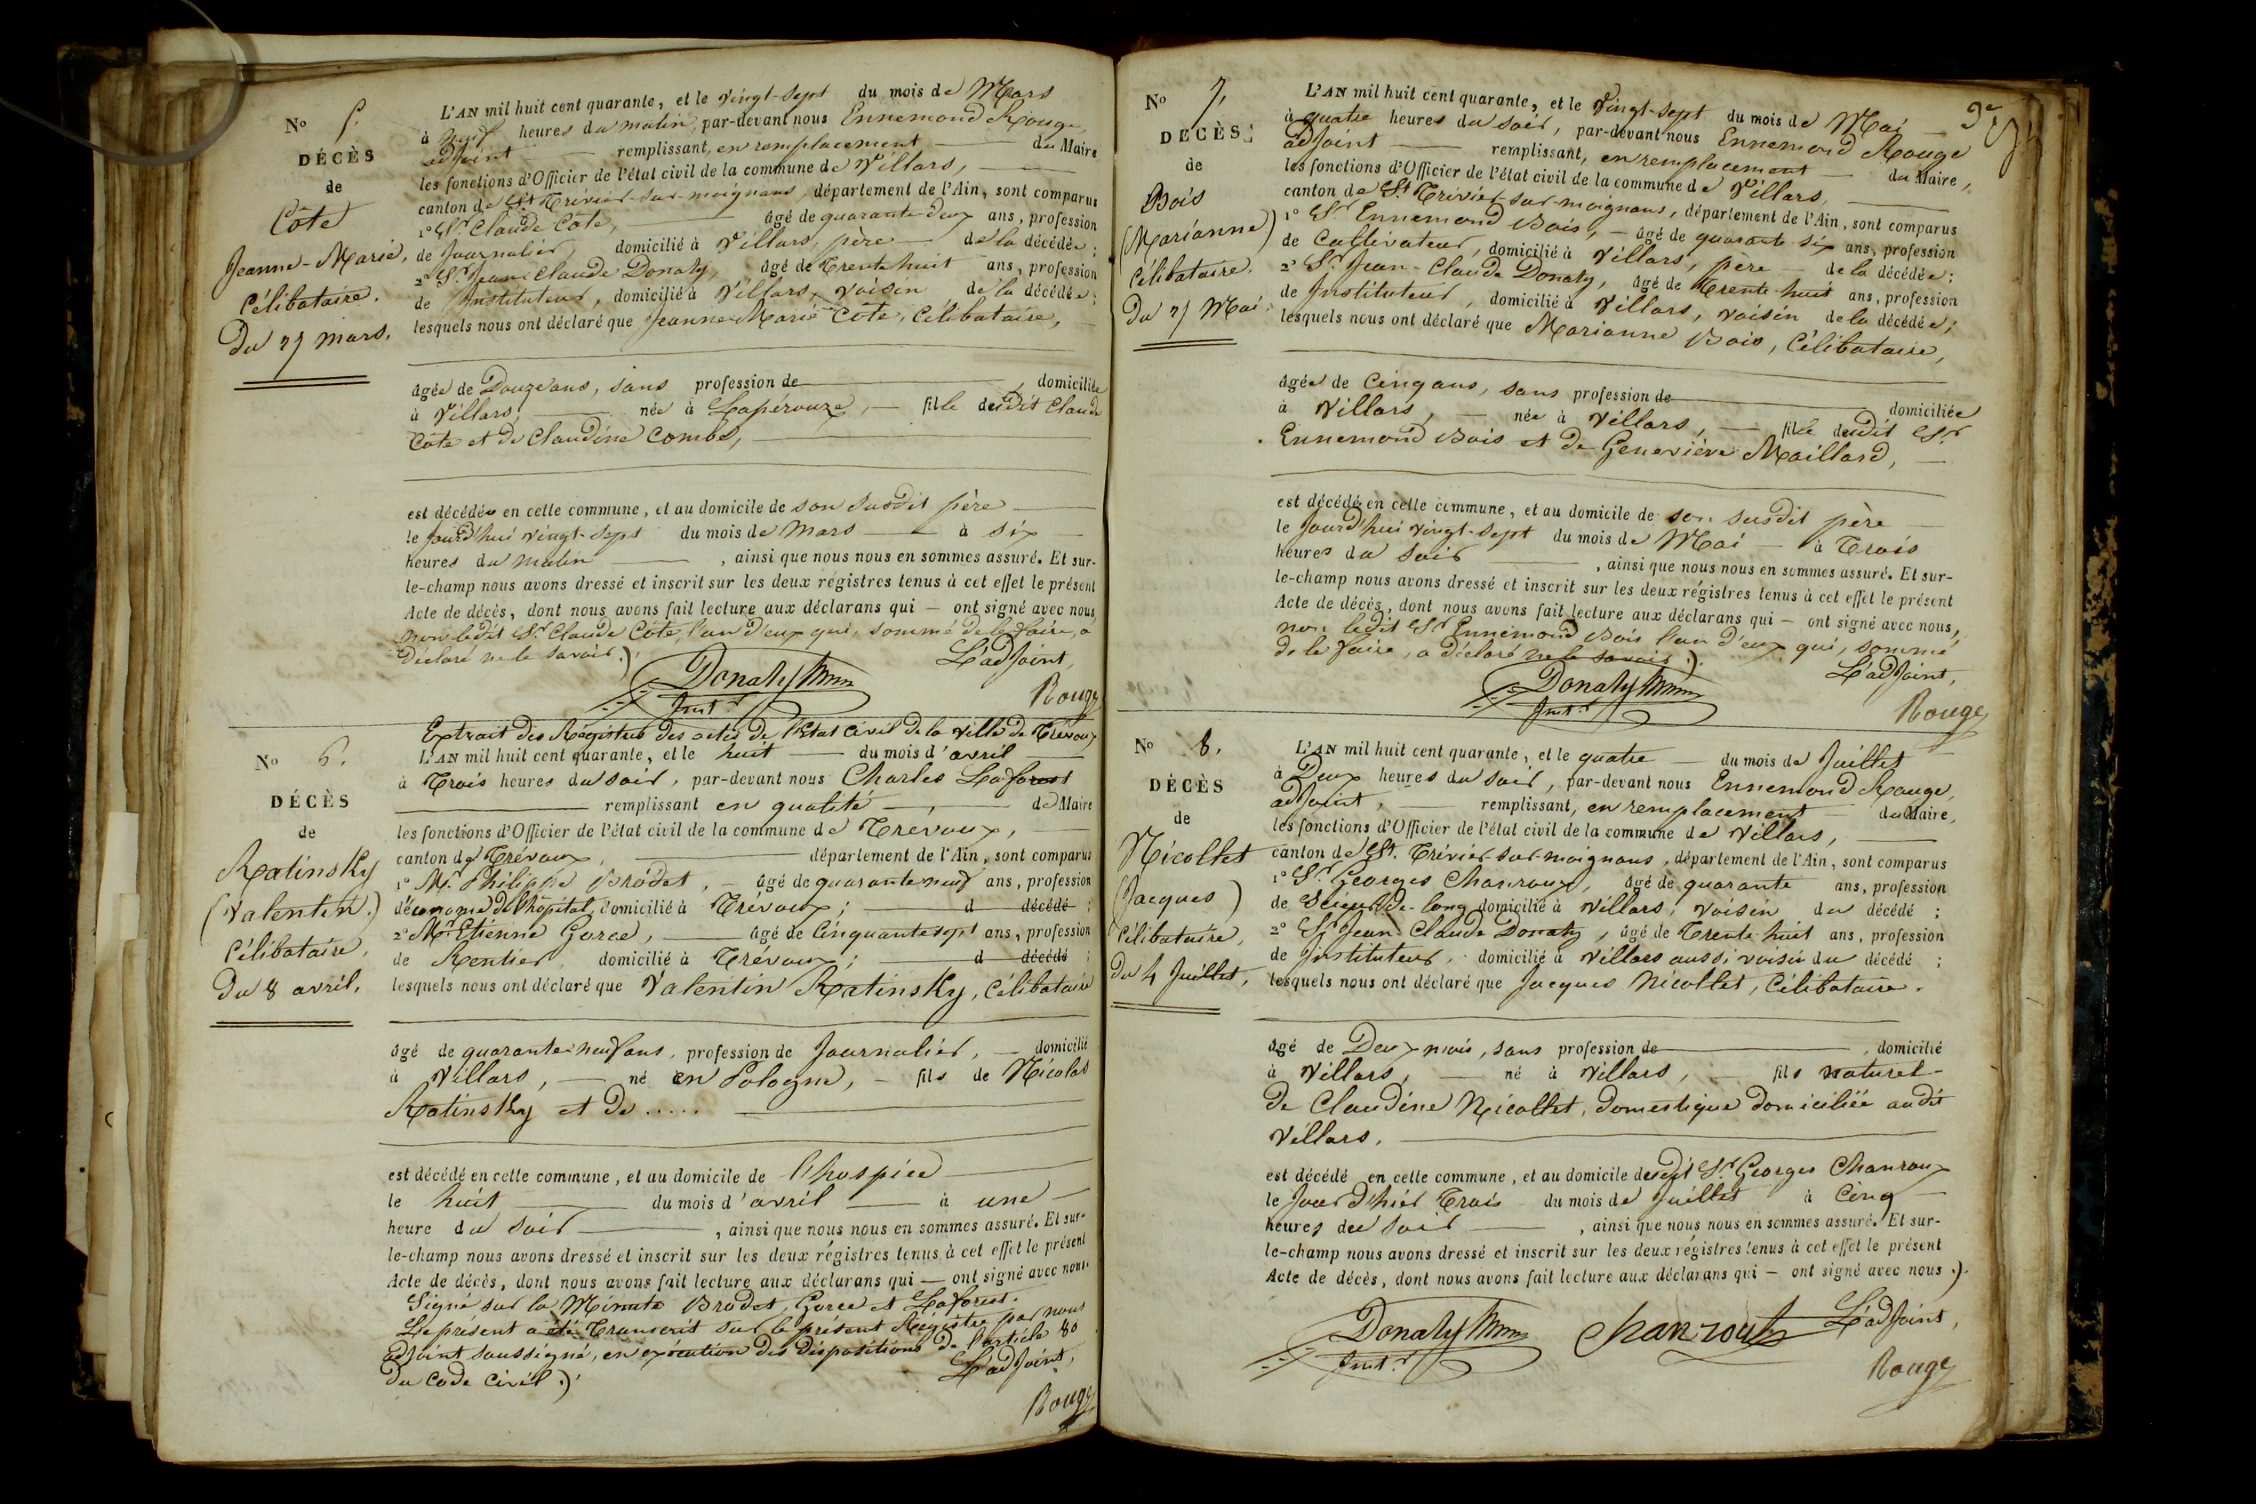 No 5.
DÉCÈS
de
Côte
Jeanne-Marie,
Célibataire.
Du 27 mars.
L'AN mil huit cent quarante, et le vingt-sept du mois de Mars
à neuf heures du matin, par-devant nous Ennemond Rouge,
adjoint remplissant, en remplacement du Maire
les fonctions d'Officier de l'état civil de la commune de Villars,
canton de St Trivier-sur-moignans, département de l'Ain, sont comparus
1° Sr Claude Côte, âgé de quarante-deux ans, profession
de Journalier, domicilié à Villars, père de la décédée;
2° Sr Jean Claude Donaty, âgé de Trente huit ans, profession
de Instituteur, domicilié à Villars, voisin de la décédée;
lesquels nous ont déclaré que Jeanne-Marie Côte, Célibataire,
âgée de Douze ans, sans profession de domiciliée
à Villars, née à Lapérouze, fille dudit Claude
Côte et de Claudine Combe,
est décédée en cette commune, et au domicile de son susdit père
le jourd'hui vingt-sept du mois de Mars à six
heures du matin, ainsi que nous nous en sommes assuré. Et sur-
le-champ nous avons dressé et inscrit sur les deux régistres tenus à cet effet le présent
Acte de décès, dont nous avons fait lecture aux déclarans qui — ont signé avec nous,
non ledit Sr Claude Côte, l'un d'eux qui, sommé de le faire, a
Déclaré ne le savoir.)
L'adjoint,
Donaty
Instr
Rouge
Extrait des Régistres des actes de l'Etat civil de la ville de Trévoux
No 6.
DÉCÈS
de
Ratinsky
(Valentin.)
Célibataire,
Du 8 avril.
L'AN mil huit cent quarante, et le huit du mois d'avril
à Trois heures du soir, par-devant nous Charles Laforest
remplissant en qualité de Maire
les fonctions d'Officier de l'état civil de la commune de Trévoux,
canton de Trévoux, département de l'Ain, sont comparus
1° Mr. Philippe Brödet, âgé de quarante neuf ans, profession
d'économe de l'hôpital, domicilié à Trévoux; d décédé;
2° Mr Etienne Gorce, âgé de Cinquante sept ans, profession
de Rentier, domicilié à Trévoux; d décédé;
lesquels nous ont déclaré que Valentin Ratinsky, Célibataire
âgé de quarante-neuf ans, profession de Journalier, domicilié
à Villars, né en Pologne, fils de Nicolas
Ratinsky et de .....
est décédé en cette commune, et au domicile de l'hospice
le huit du mois d'avril à une
heure du soir, ainsi que nous nous en sommes assuré. Et sur-
le-champ nous avons dressé et inscrit sur les deux régistres tenus à cet effet le présent
Acte de décès, dont nous avons fait lecture aux déclarans qui — ont signé avec nous.
Signé sur la Minute Brodet, Gorce et Laforest.
Le présent a été Transcrit sur le présent Régistre par nous
adjoint soussigné, en exécution des dispositions de l'article 80
du Code Civil.)
L'adjoint,
Rouge
9e
No 7.
DÉCÈS
de
Bois
(Marianne)
Célibataire.
Du 27 Mai.
L'AN mil huit cent quarante, et le vingt-sept du mois de Mai
à quatre heures du soir, par-devant nous Ennemond Rouge
adjoint remplissant, en remplacement du Maire,
les fonctions d'Officier de l'état civil de la commune de Villars,
canton de St Trivier-sur-moignans, département de l'Ain, sont comparus
1° Sr Ennemond Bois, âgé de quarante-six ans, profession
de Cultivateur, domicilié à Villars, père de la décédée;
2° Sr Jean-Claude Donaty, âgé de Trente-huit ans, profession
de Instituteur, domicilié à Villars, voisin de la décédée;
lesquels nous ont déclaré que Marianne Bois, Célibataire,
âgée de Cinq ans, sans profession de domiciliée
à Villars, née à Villars, fille dudit Sr
Ennemond Bois et de Geneviève Maillard,
est décédée en cette commune, et au domicile de son susdit père
le Jourd'hui vingt-sept du mois de Mai à Trois
heures du soir, ainsi que nous nous en sommes assuré. Et sur-
le-champ nous avons dressé et inscrit sur les deux régistres tenus à cet effet le présent
Acte de décès, dont nous avons fait lecture aux déclarans qui — ont signé avec nous,
non ledit Sr Ennemond Bois l'un d'eux qui, sommé
de le faire, a déclaré ne le savoir.)
L'adjoint,
Donaty
Instr
Rouge
No 8.
DÉCÈS
de
Nicollet
(Jacques)
Célibataire,
Du 4 Juillet,
L'AN mil huit cent quarante, et le quatre du mois de Juillet
à Deux heures du soir, par-devant nous Ennemond Rouge,
adjoint, remplissant, en remplacement du Maire,
les fonctions d'Officier de l'état civil de la commune de Villars,
canton de St. Trivier-sur-moignans, département de l'Ain, sont comparus
1° Sr. Georges Chanroux, âgé de quarante ans, profession
de Scieur-de-long, domicilié à Villars, voisin du décédé;
2° Sr Jean Claude Donaty, âgé de Trente-huit ans, profession
de Instituteur, domicilié à Villars aussi voisin du décédé;
lesquels nous ont déclaré que Jacques Nicollet, Célibataire.
âgé de Deux mois, sans profession de, domicilié
à Villars, né à Villars, fils naturel
de Claudine Nicollet, domestique domiciliée audit
Villars,
est décédé en cette commune, et au domicile dudit Sr. Georges Chanroux
le Jour d'hier Trois du mois de Juillet à Cinq
heures du soir, ainsi que nous nous en sommes assuré. Et sur-
le-champ nous avons dressé et inscrit sur les deux régistres tenus à cet effet le présent
Acte de décès, dont nous avons fait lecture aux déclarans qui — ont signé avec nous.)
L'adjoint,
Donaty
Instr
Chanroux
Rouge